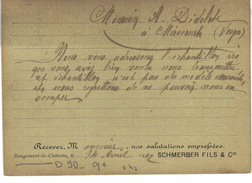 Monsieur A. Didelot
à Mirecourt (Vosges)
Nous vous adressons l'échantillon
que vous avez bien voulu nous transmettre
et échantillon n'est pas du modèle
nous regrettons de ne pouvoir nous en
occuper
Recevez, Monsieur, nos salutations empressées.
SCHMERBER FILS & Cº
Rougemont-le-Château, le 14 Avril